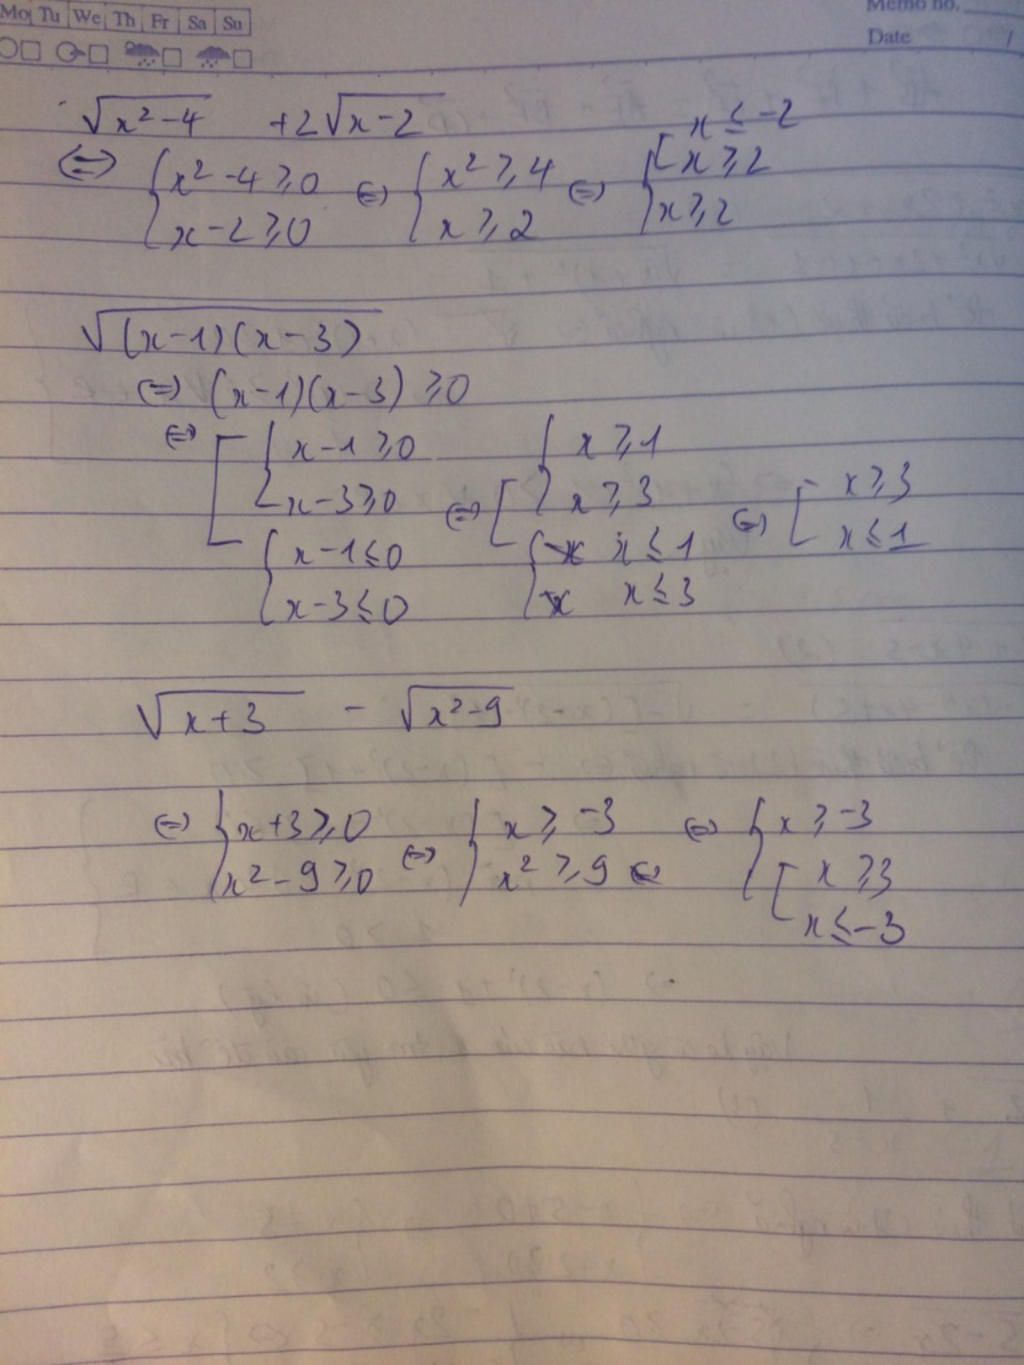 Mo Tu We Th Fr Sa Su
Memo no.
Date /
√(x²-4) +2√(x-2)
x ≤ -2
(=) { x²-4 ≥ 0 (=) { x² ≥ 4 (=) { [ x ≥ 2
x-2 ≥ 0 x ≥ 2 x ≥ 2
√((x-1)(x-3))
(=) (x-1)(x-3) ≥ 0
(=) [ { x-1 ≥ 0 { x ≥ 1
x-3 ≥ 0 (=) [ x ≥ 3 (=) [ x ≥ 3
{ x-1 ≤ 0 { x ≤ 1 x ≤ 1
x-3 ≤ 0 x ≤ 3
√(x+3) - √(x²-9)
(=) { x+3 ≥ 0 (=) { x ≥ -3 (=) { x ≥ -3
x²-9 ≥ 0 x² ≥ 9 [ x ≥ 3
x ≤ -3